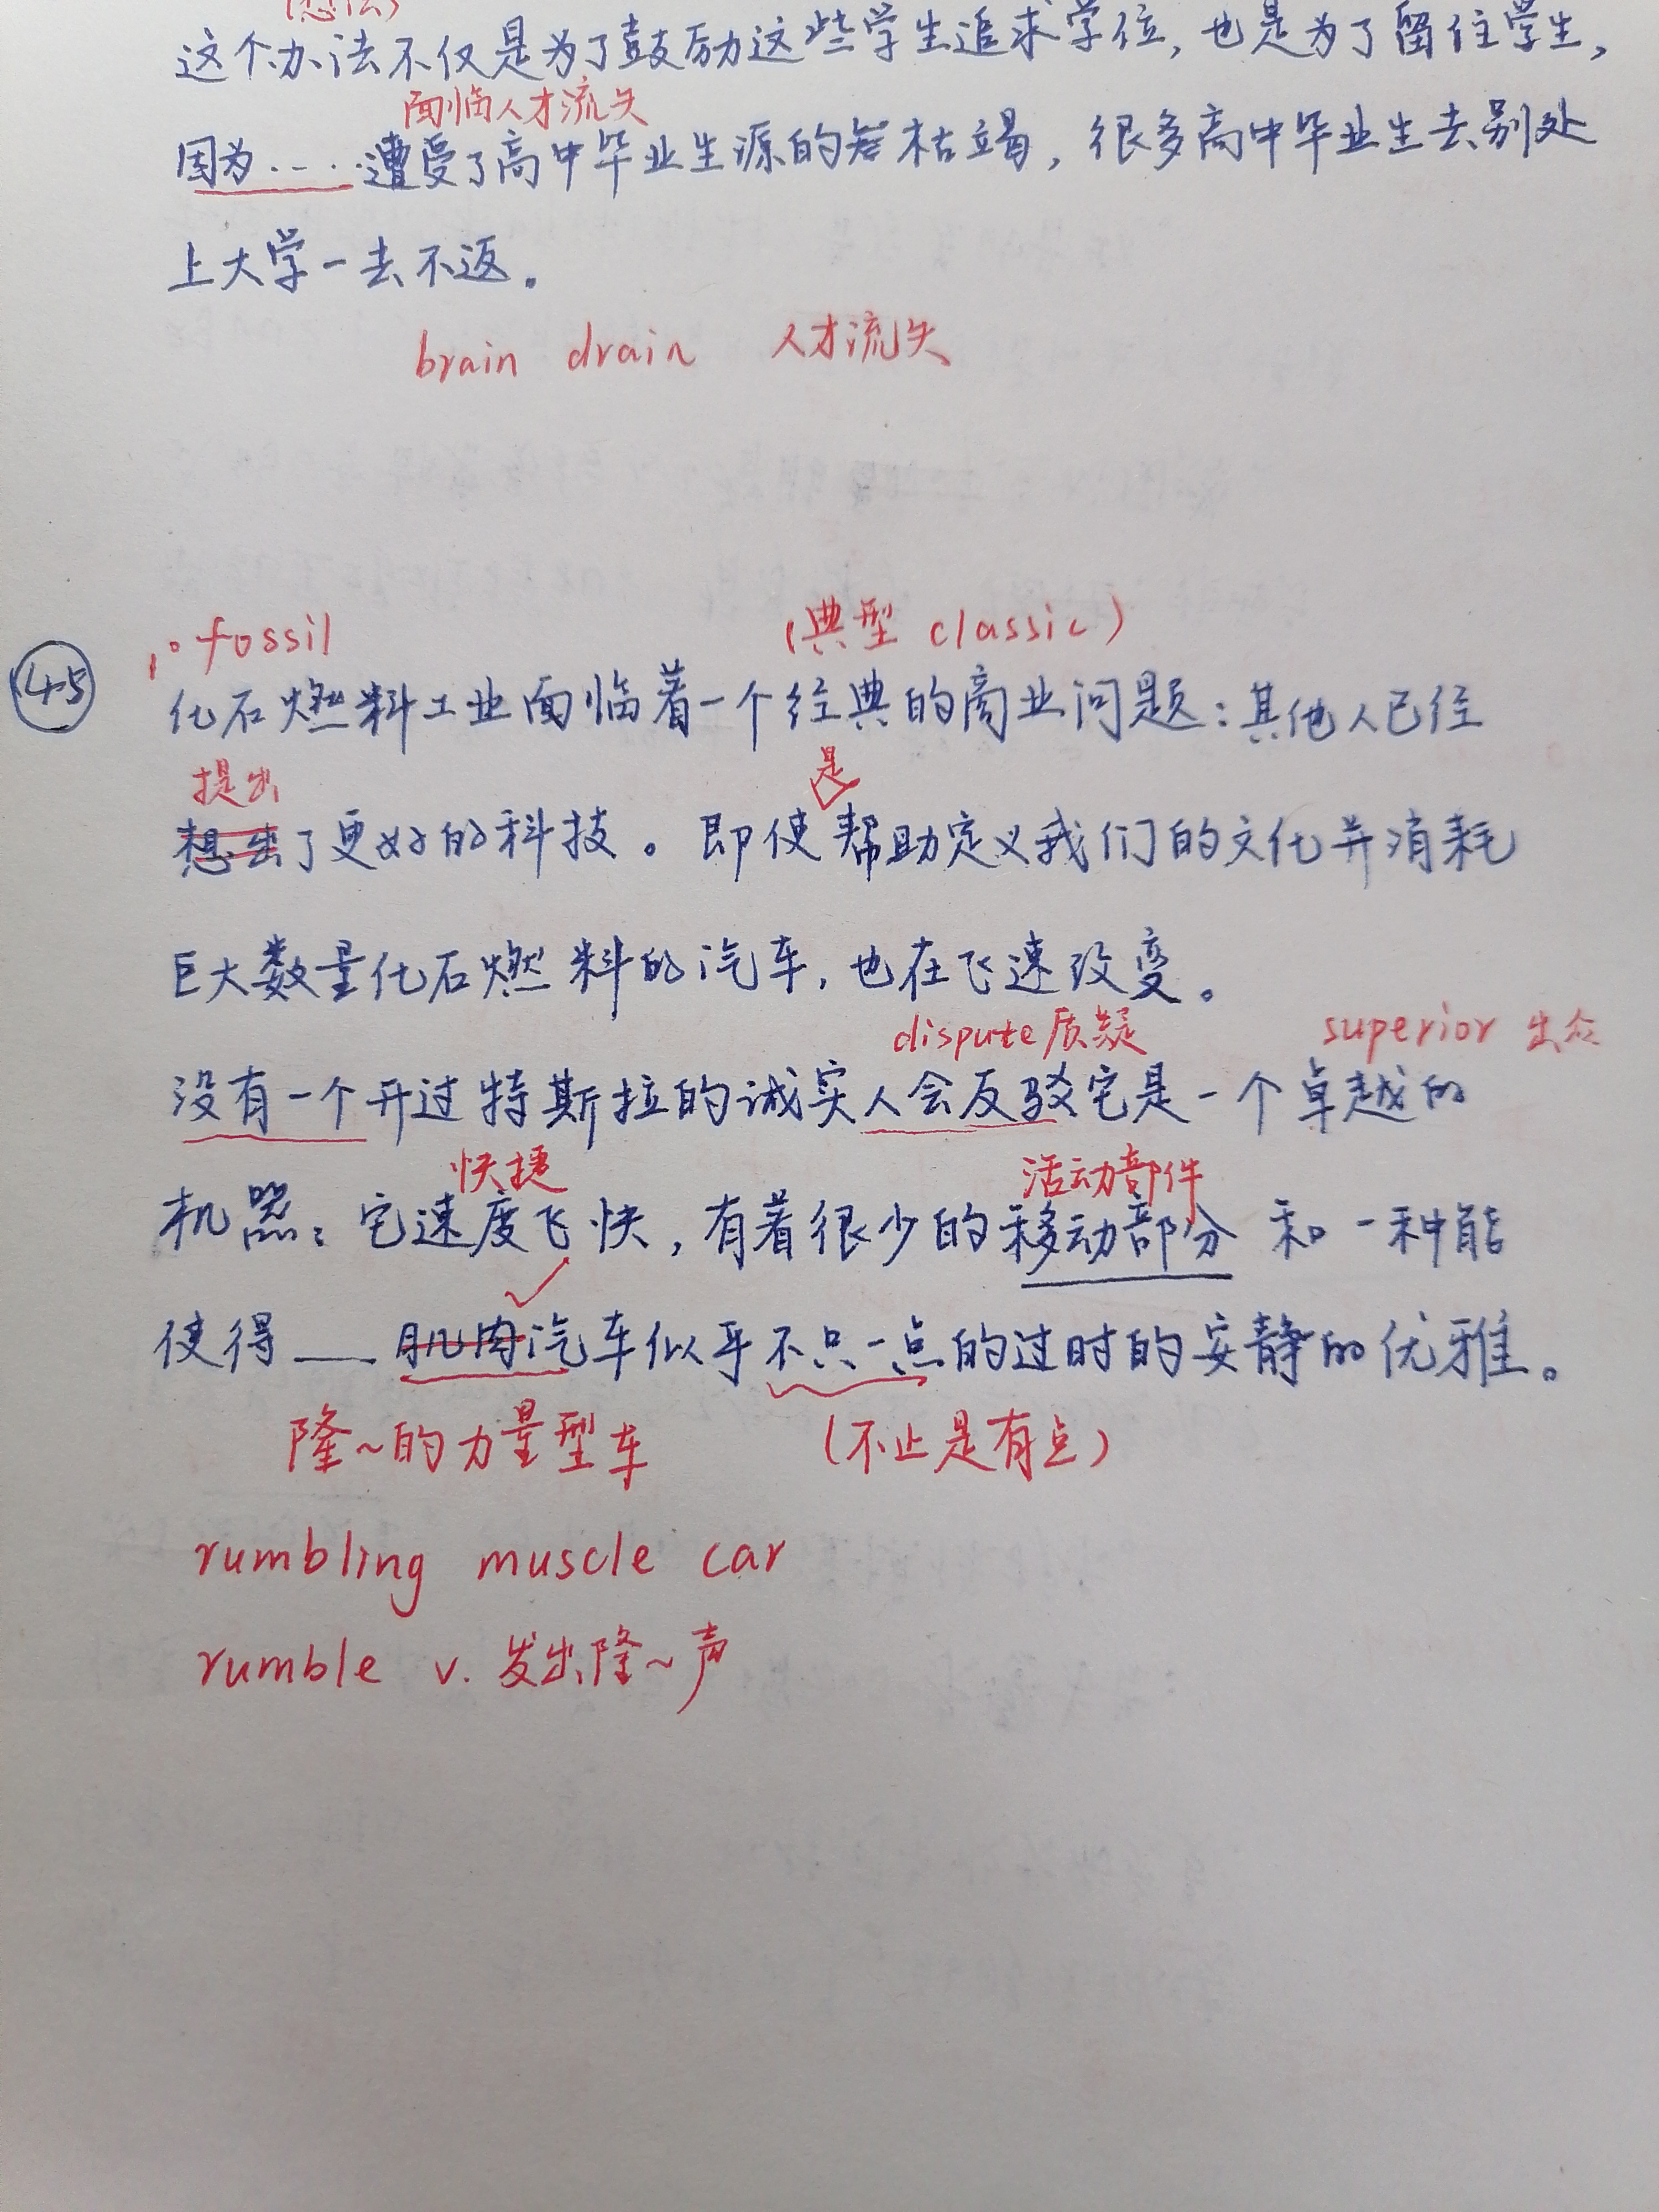 (想法)
这个办法不仅是为了鼓励这些学生追求学位,也是为了留住学生,
面临人才流失
因为……遭受了高中毕业生源的枯竭,很多高中毕业生去别处
上大学一去不返。
brain drain 人才流失
fossil
(典型 classic)
45
化石燃料工业面临着一个经典的商业问题:其他人已经
提出
是
想出了更好的科技。即使帮助定义我们的文化并消耗
巨大数量化石燃料的汽车,也在飞速改变。
dispute质疑
superior 出众
没有一个开过特斯拉的诚实人会反驳它是一个卓越的
快捷
活动部件
机器:它速度飞快,有着很少的移动部分和一种能
使得___肌肉汽车似乎不只一点的过时的安静的优雅。
隆~的力量型车
(不止是有点)
rumbling muscle car
rumble v. 发出隆~声